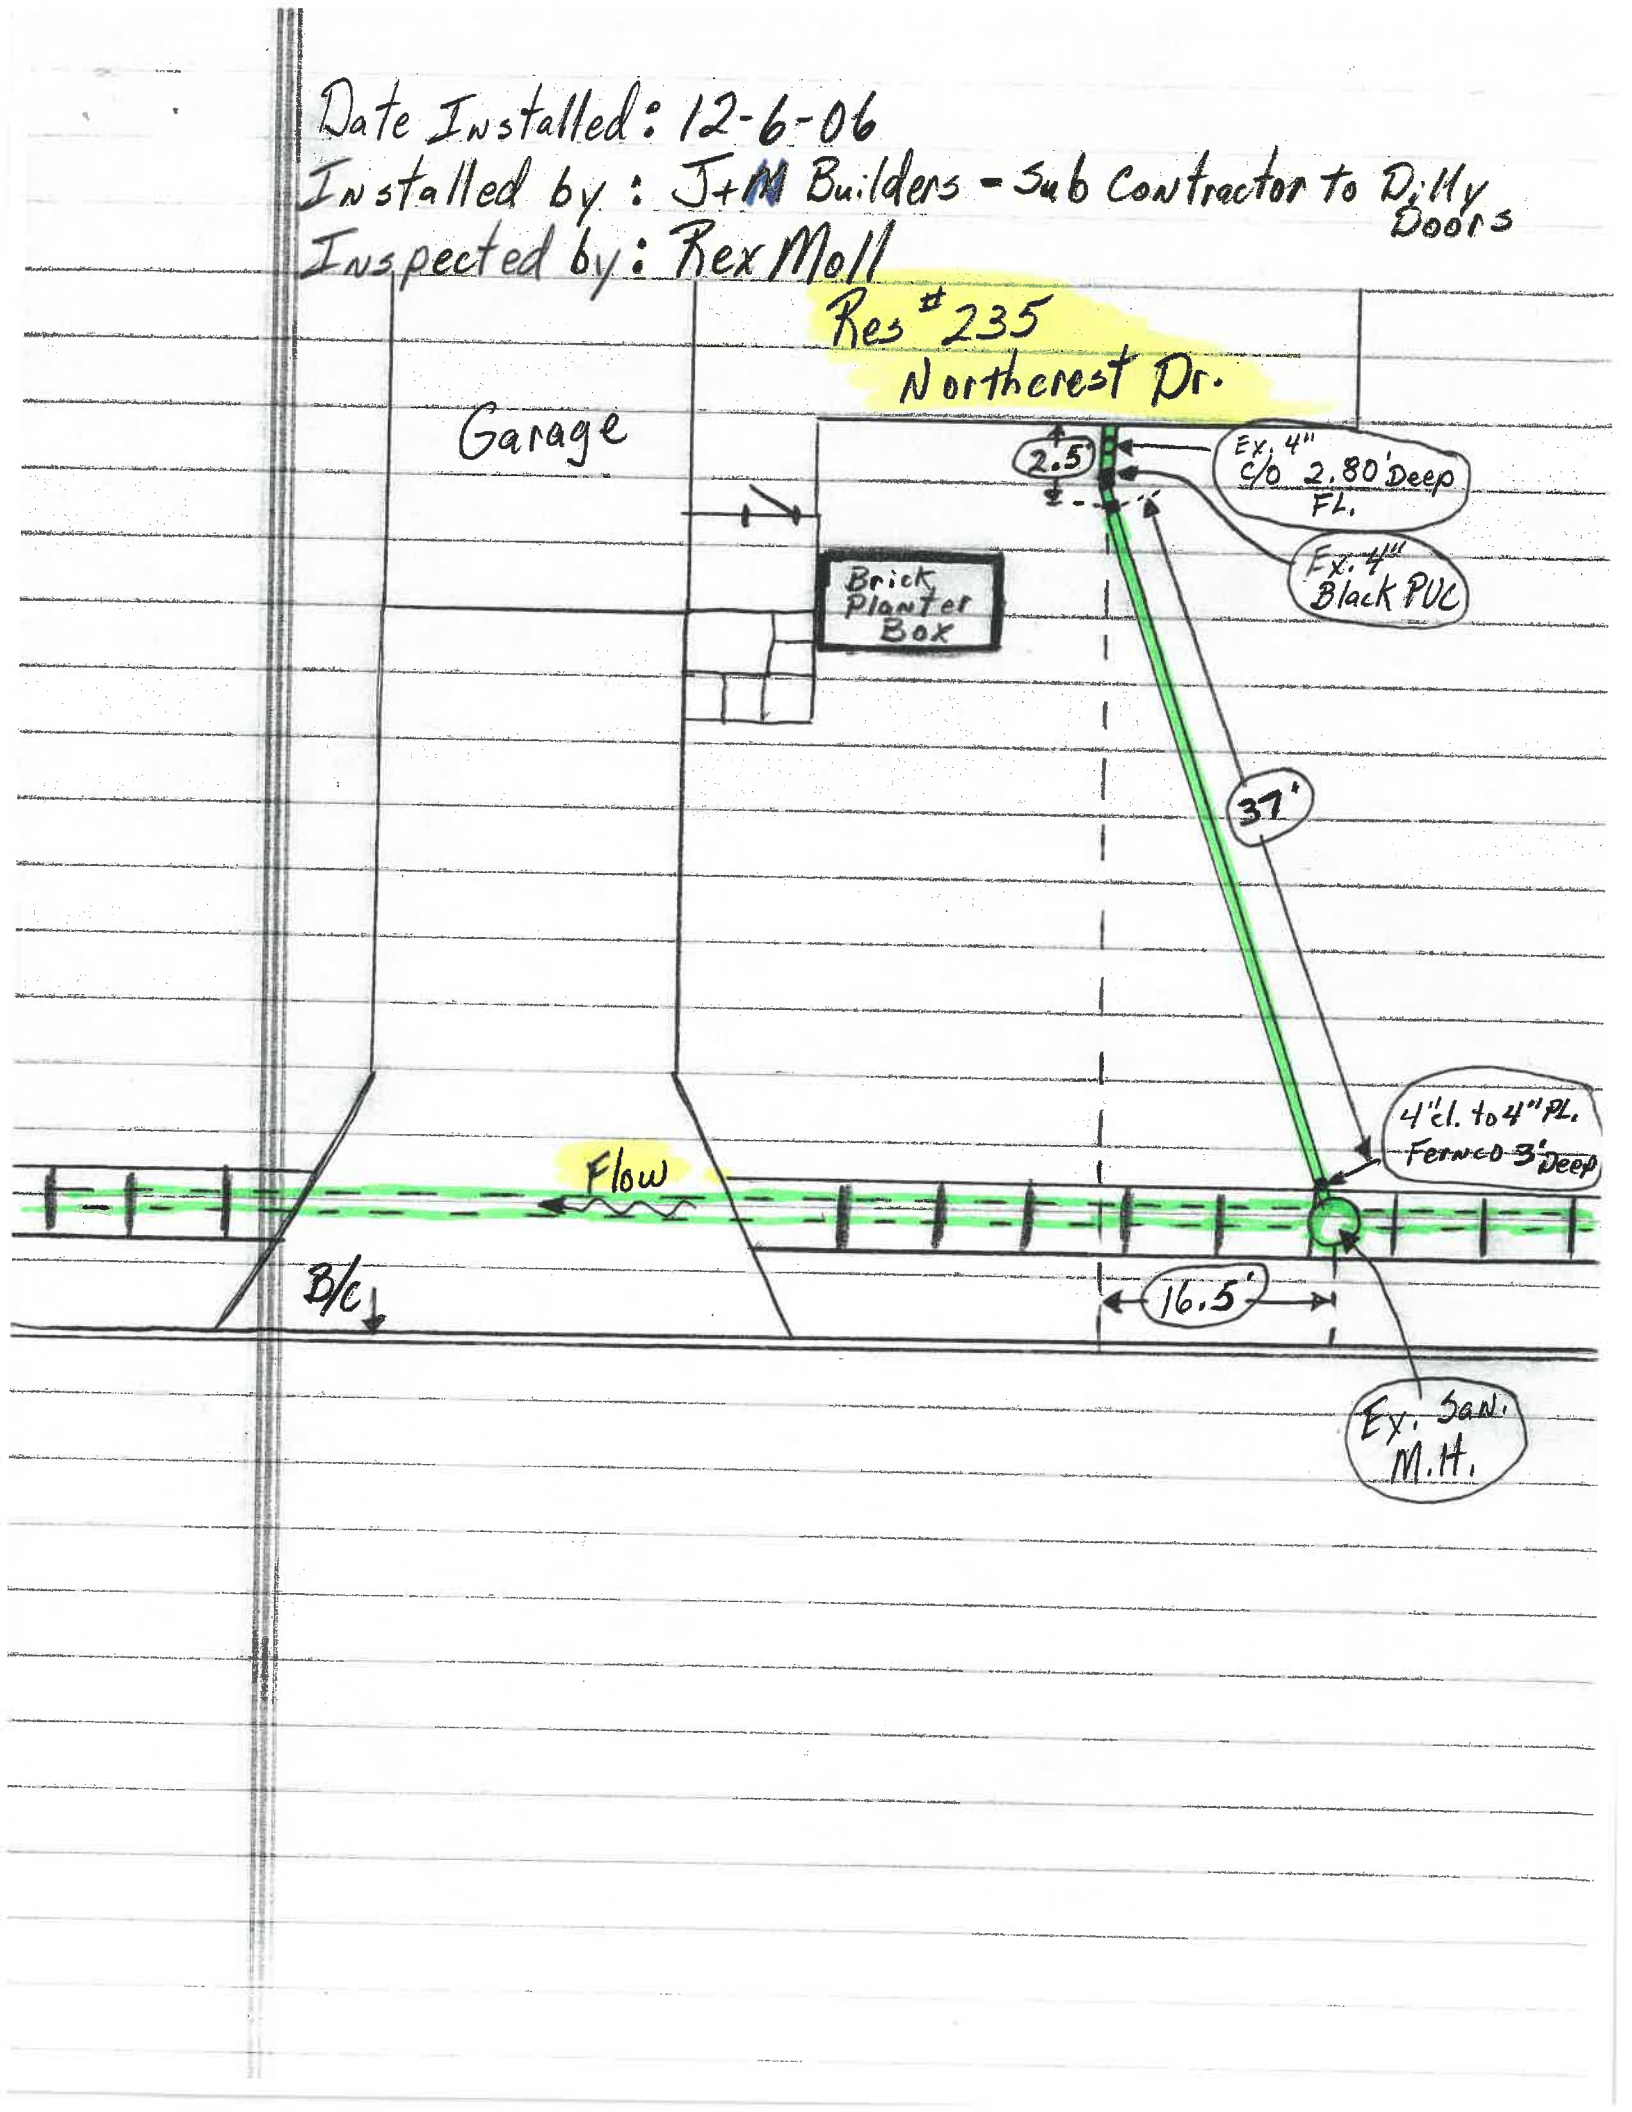 Date Installed: 12-6-06
Installed by: J+M Builders - Sub Contractor to Dilly
Doors
Inspected by: Rex Moll
Res #235
Northcrest Dr.
Garage
2.5'
Ex. 4"
c/o 2.80' Deep
FL.
Ex. 4"
Black PVC
Brick
Planter
Box
37'
4" cl. to 4" PL.
Fernco 3' Deep
Flow
B/c
16.5'
Ex. San.
M.H.